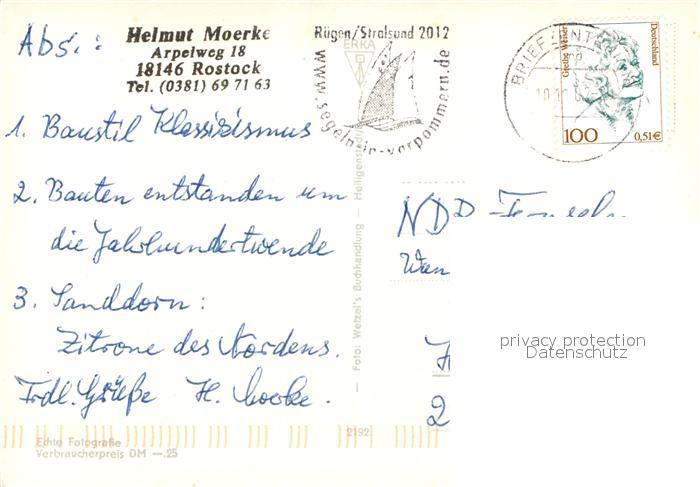 Abs.:
Helmut Moerke
Arpelweg 18
18146 Rostock
Tel. (0381) 69 71 63
Rügen/Stralsund 2012
www.segeln-in-vorpommern.de
ERKA
BRIEFZENTRUM
Deutschland
100
0,51€
1. Baustil Klassizismus
2. Bauten entstanden um
die Jahrhundertwende
3. Sanddorn:
Zitrone des Nordens.
Frdl. Grüße H. Moerke.
Foto: Wetzel's Buchhandlung — Heiligenstadt
NDD
privacy protection
Datenschutz
2192
Echte Fotografie
Verbraucherpreis DM —.25